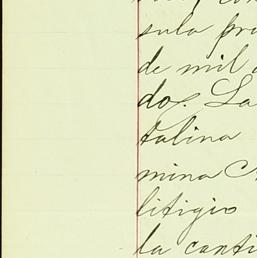 sula pro
de mil
dos. La
talina
mina C
litigio
la canti